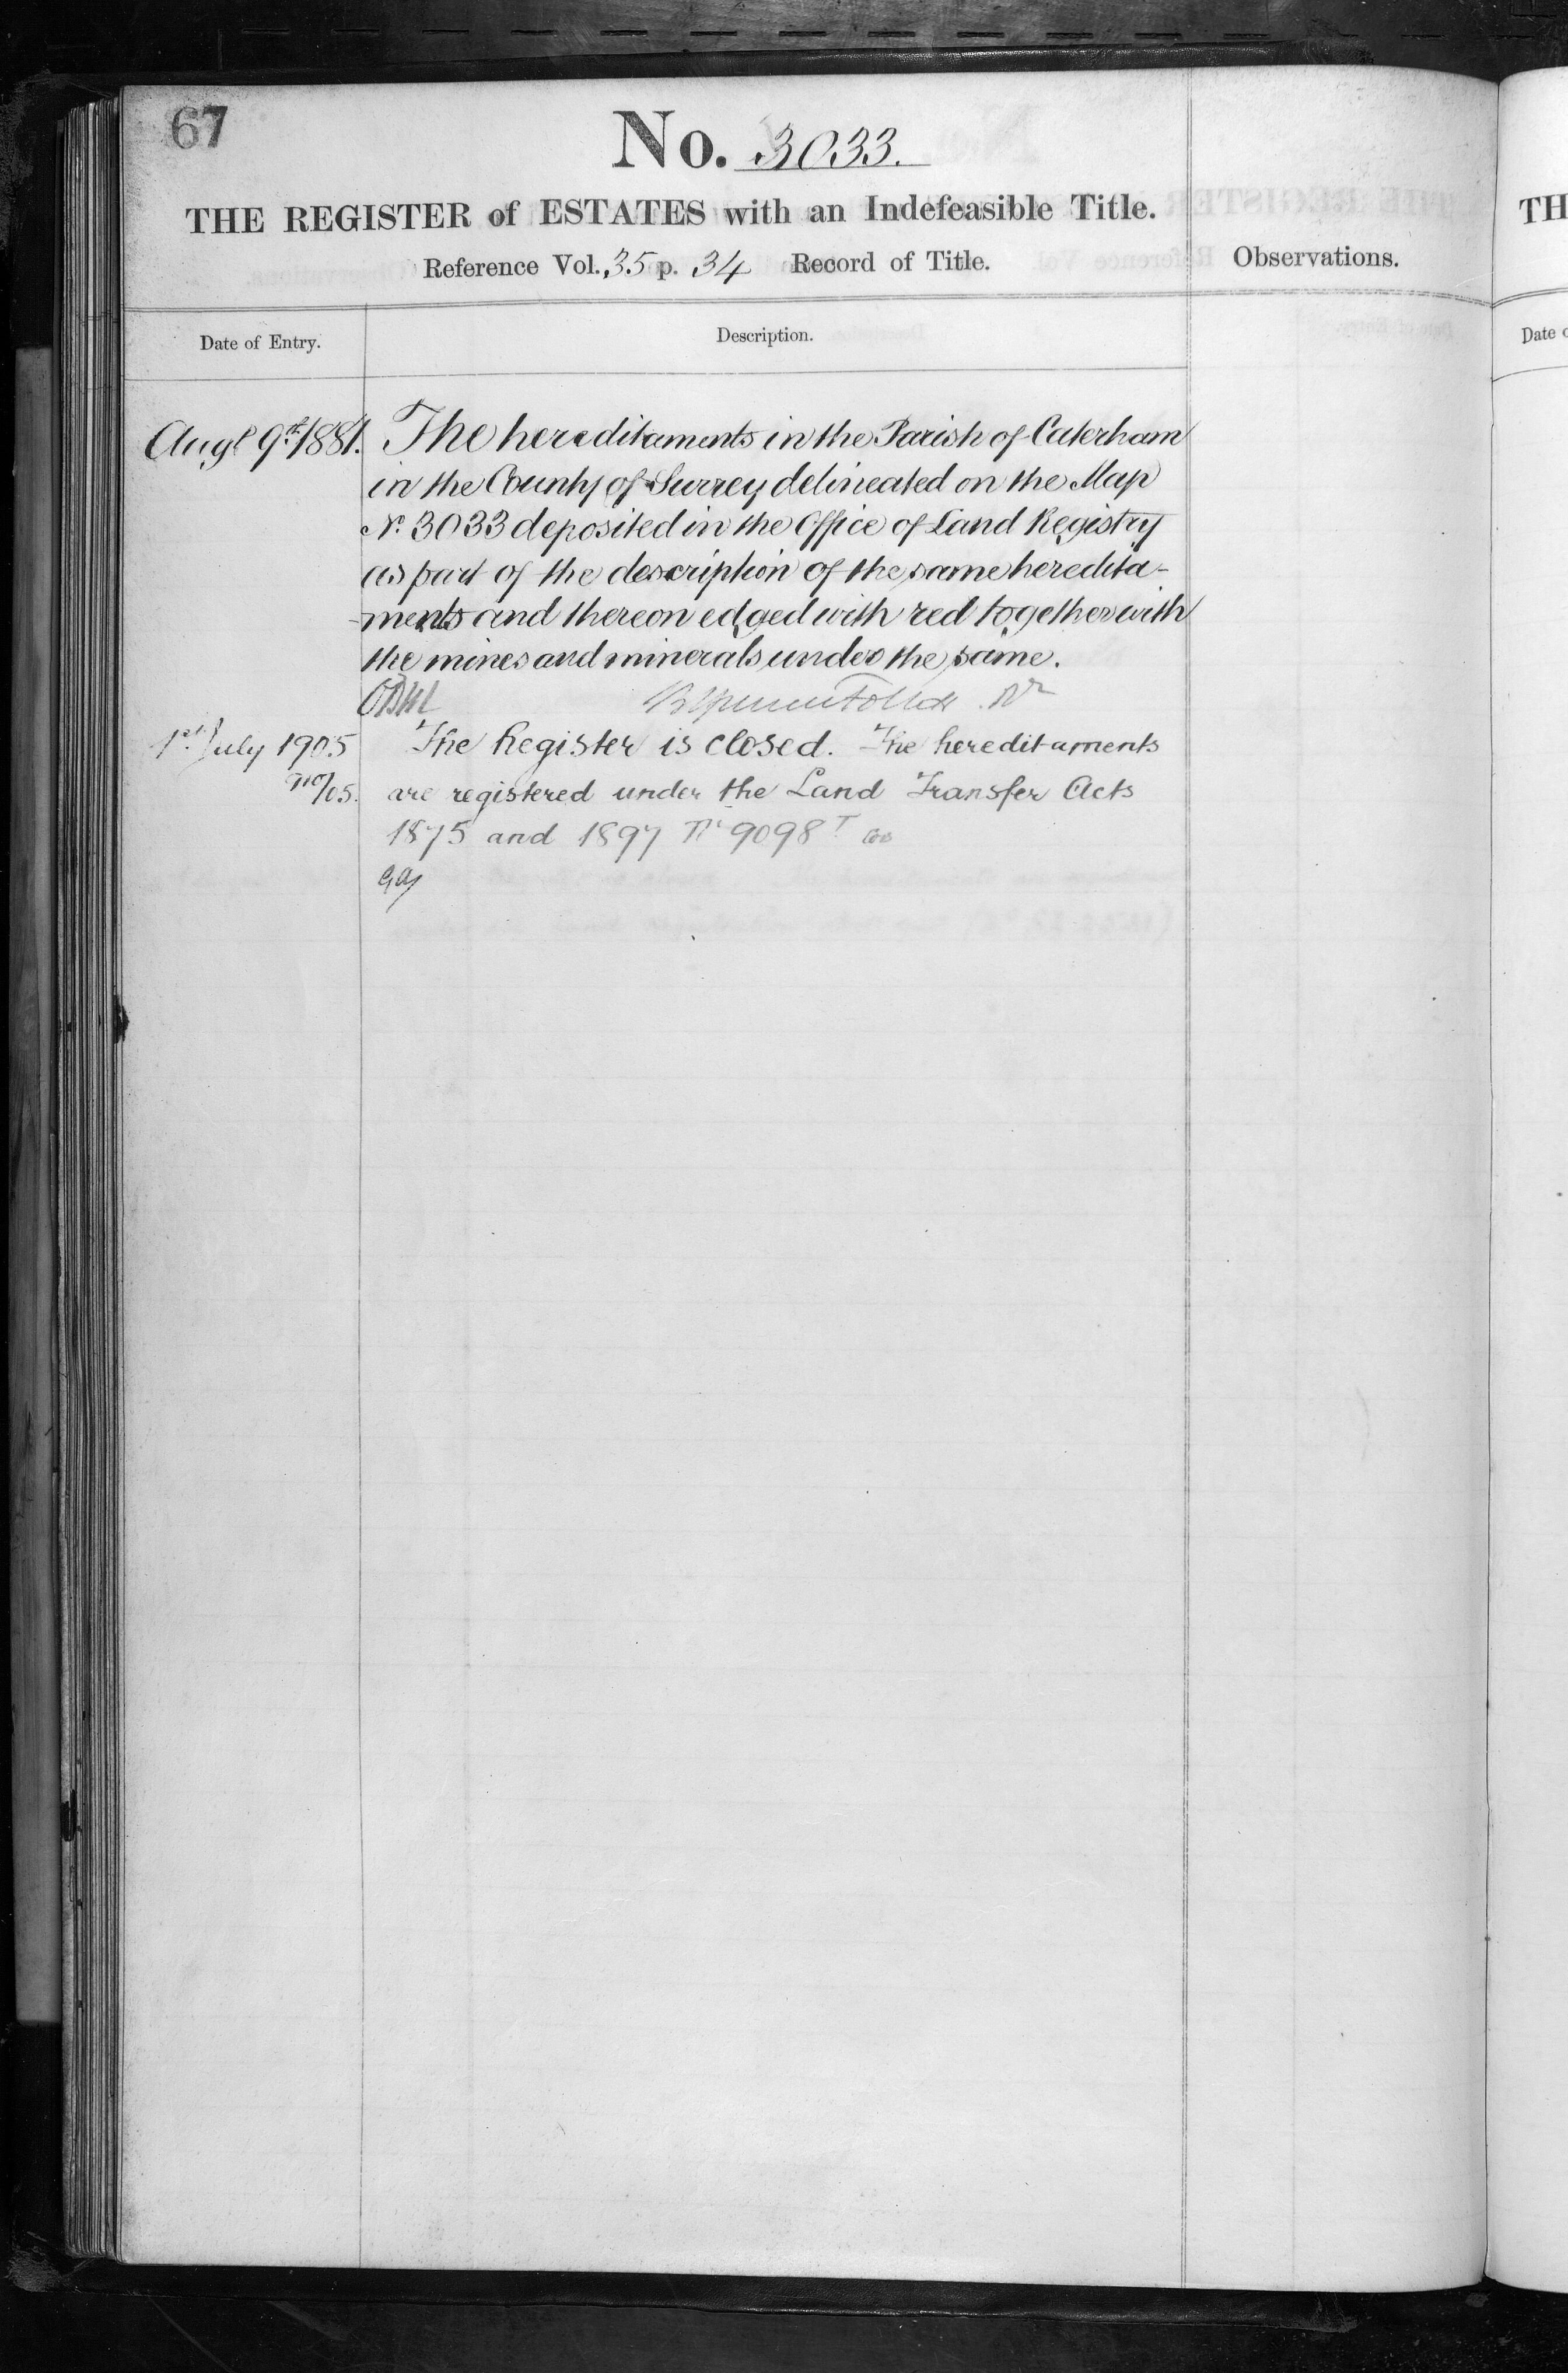 67
No. 3033.
THE REGISTER of ESTATES with an Indefeasible Title.
Reference Vol. 35 p. 34 Record of Title.
Observations.
TH
Date of Entry.
Description.
Date
Augt 9th 1881.
The hereditaments in the Parish of Caterham
in the County of Surrey delineated on the Map
No. 3033 deposited in the Office of Land Registry
as part of the description of the same heredita-
-ments and thereon edged with red together with
the mines and minerals under the same.
1st July 1905
The Register is closed. The hereditaments
are registered under the Land Transfer Acts
1875 and 1897 9098